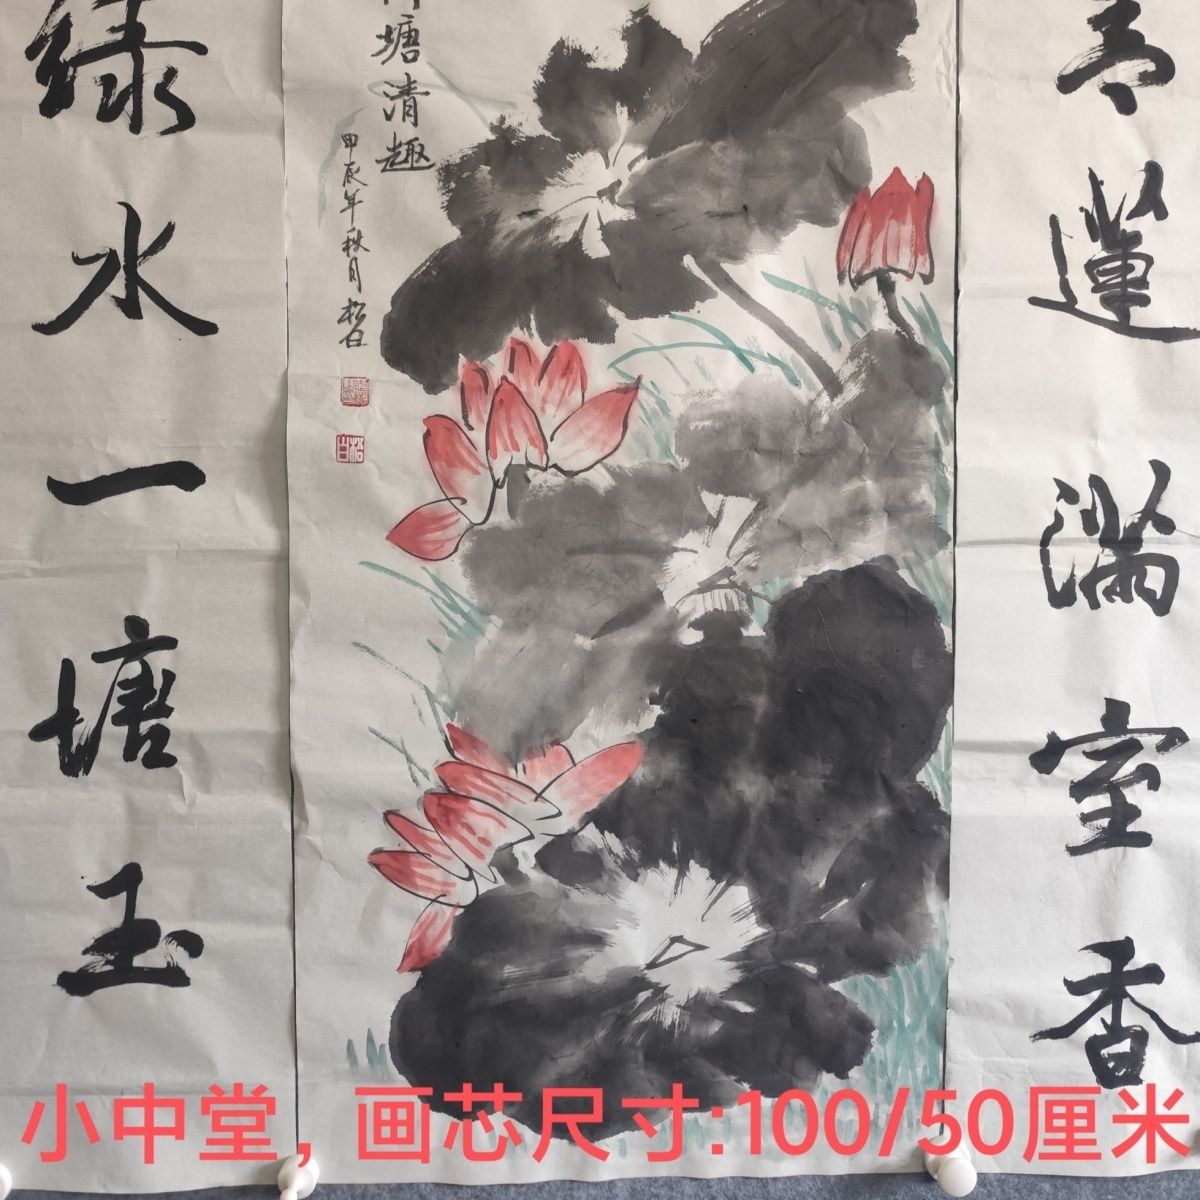 青蓮满室香
塘清趣
甲辰年秋月松白
松白
绿水一塘玉
小中堂，画芯尺寸:100/50厘米